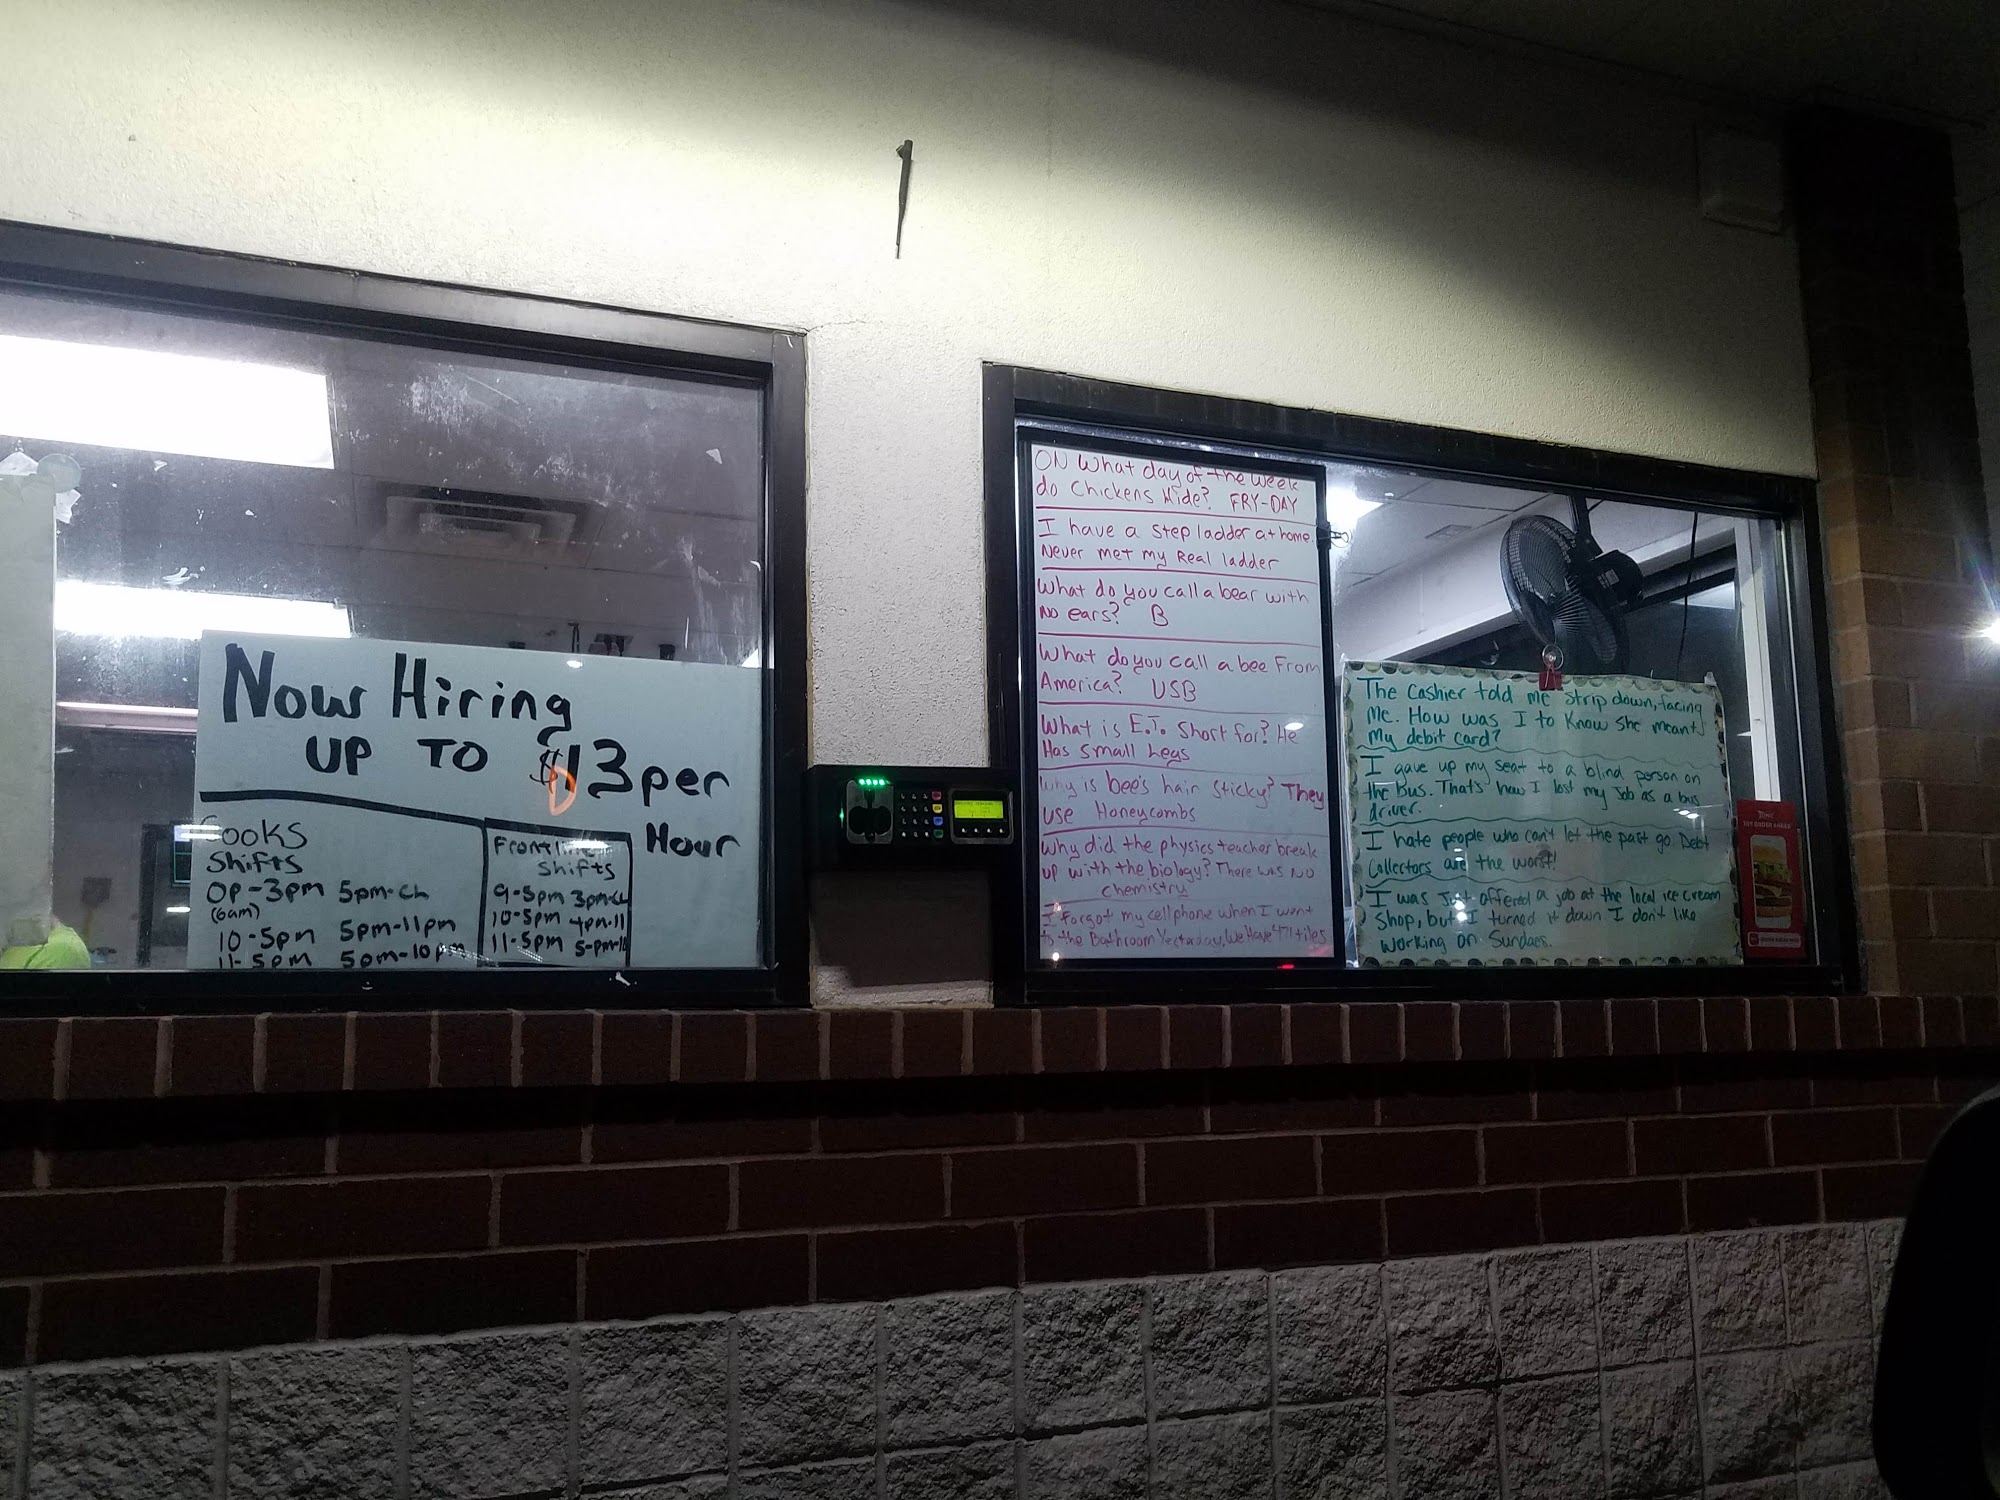 Now Hiring
UP TO $13 per
Hour
Cooks
Shifts
Op-3pm 5pm-CL
(6am)
10-5pm 5pm-11pm
11-5pm 5pm-10pm
Shifts
9-5pm 3pm-CL
10-5pm 4pm-11
11-5pm
ON What day of the week
do Chickens Hide? FRY-DAY
I have a step ladder at home.
Never met my Real ladder
What do you call a bear with
No ears? B
What do you call a bee From
America? USB
What is E.T. Short for? He
Has small Legs
Why is bee's hair sticky? They
use Honeycombs
Why did the physics teacher break
up with the biology? There was no
chemistry
I forgot my cellphone when I went
to the Bathroom Yesterday, We Have 471 tiles
The Cashier told me strip down, facing
Me. How was I to Know she meant
My debit card?
I gave up my seat to a blind person on
the Bus. That's how I lost my Job as a bus
driver.
I hate people who can't let the past go. Debt
Collectors are the worst!
I was Just offered a job at the local ice cream
Shop, but I turned it down I don't like
Working on Sundaes.